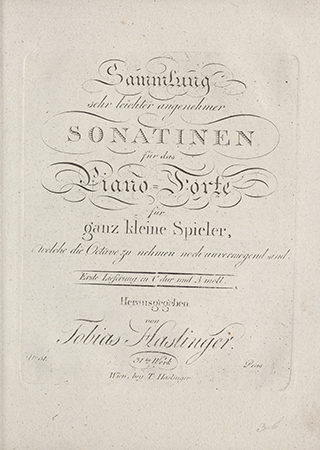 Sammlung
sehr leichter angenehmer
SONATINEN
für das
Piano=Forte
für
ganz kleine Spieler,
welche die Octave zu nehmen noch unvermögend sind.
Erste Lieferung in C dur und A moll.
Herausgegeben
von
Tobias Haslinger.
31tes Werk
Wien, bey T. Haslinger.
Preis